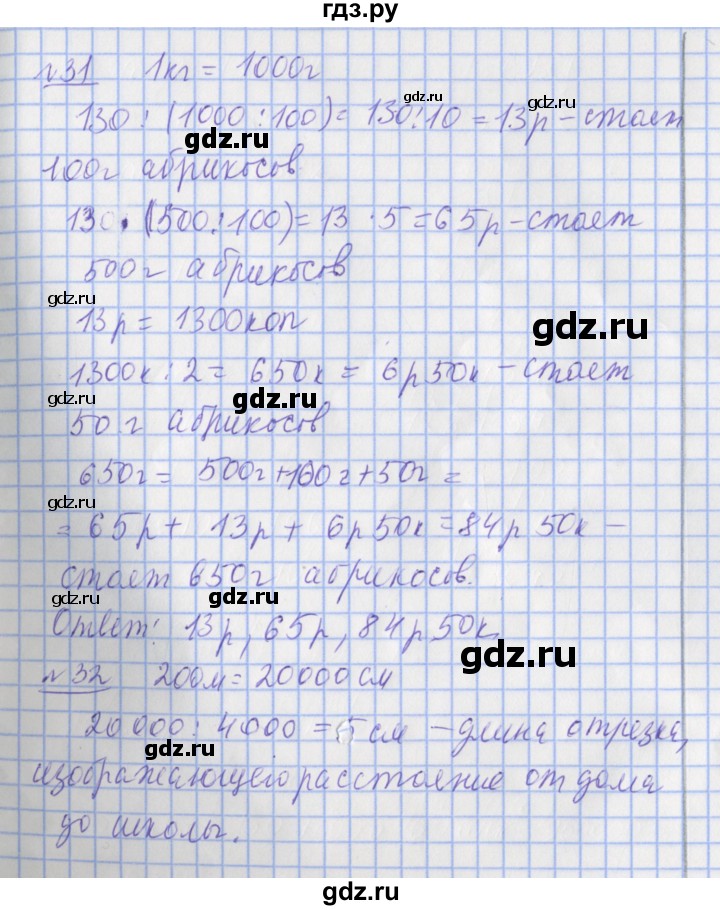 гдз.ру
№31 1кг = 1000г
gdz.ru
130 : (1000 : 100) = 130 : 10 = 13р - стоит
gdz.ru
gdz.ru
100г абрикосов
130 · (500 : 100) = 13 · 5 = 65р - стоит
500г абрикосов
gdz.ru
13р = 1300коп
gdz.ru
1300к : 2 = 650к = 6р 50к - стоит
gdz.ru
gdz.ru
50 г абрикосов
650г = 500г + 100г + 50г =
gdz.ru
= 65р + 13р + 6р 50к = 84р 50к -
стоит 650г абрикосов.
gdz.ru
gdz.ru
Ответ: 13р, 65р, 84р 50к.
gdz.ru
№32 200м = 20000см
20000 : 4000 = 5см - длина отрезка,
gdz.ru
изображающего расстояние от дома
до школы.
gdz.ru
gdz.ru